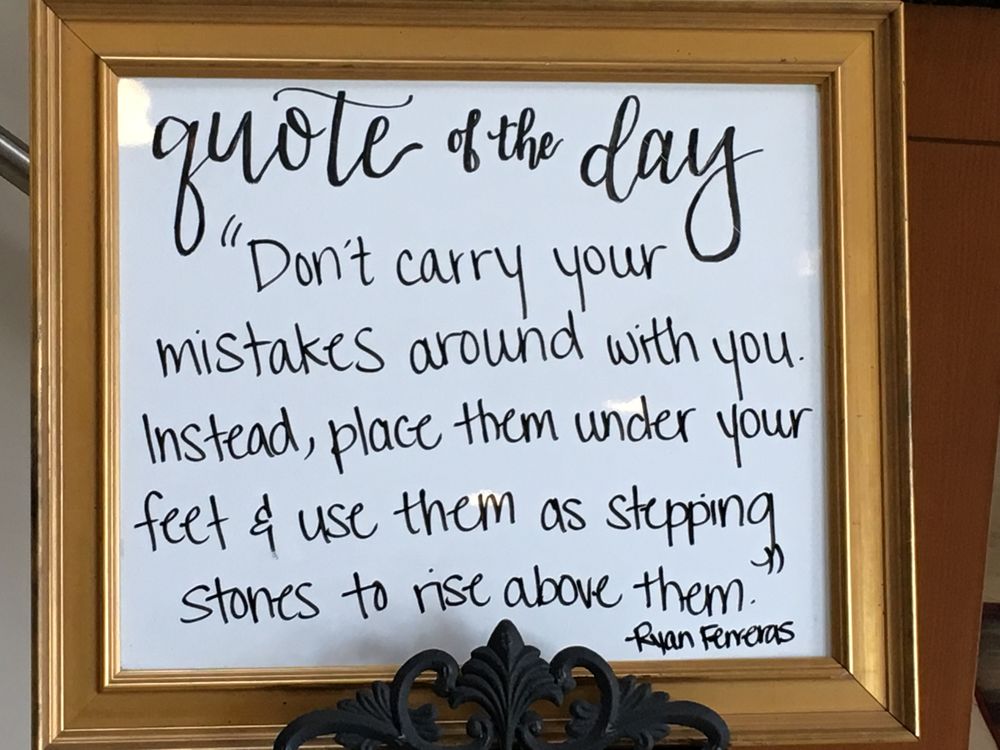 quote of the day
"Don't carry your
mistakes around with you.
Instead, place them under your
feet & use them as stepping
stones to rise above them."
-Ryan Ferreras